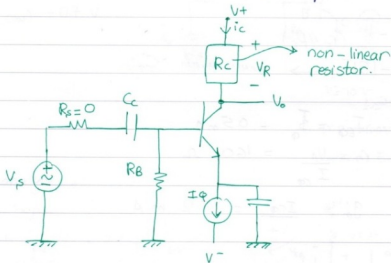 V+
ic
+
Rc
VR
-
non-linear
resistor.
Vo
Rs=0
Cc
RB
+
-
Vs
IQ
V-